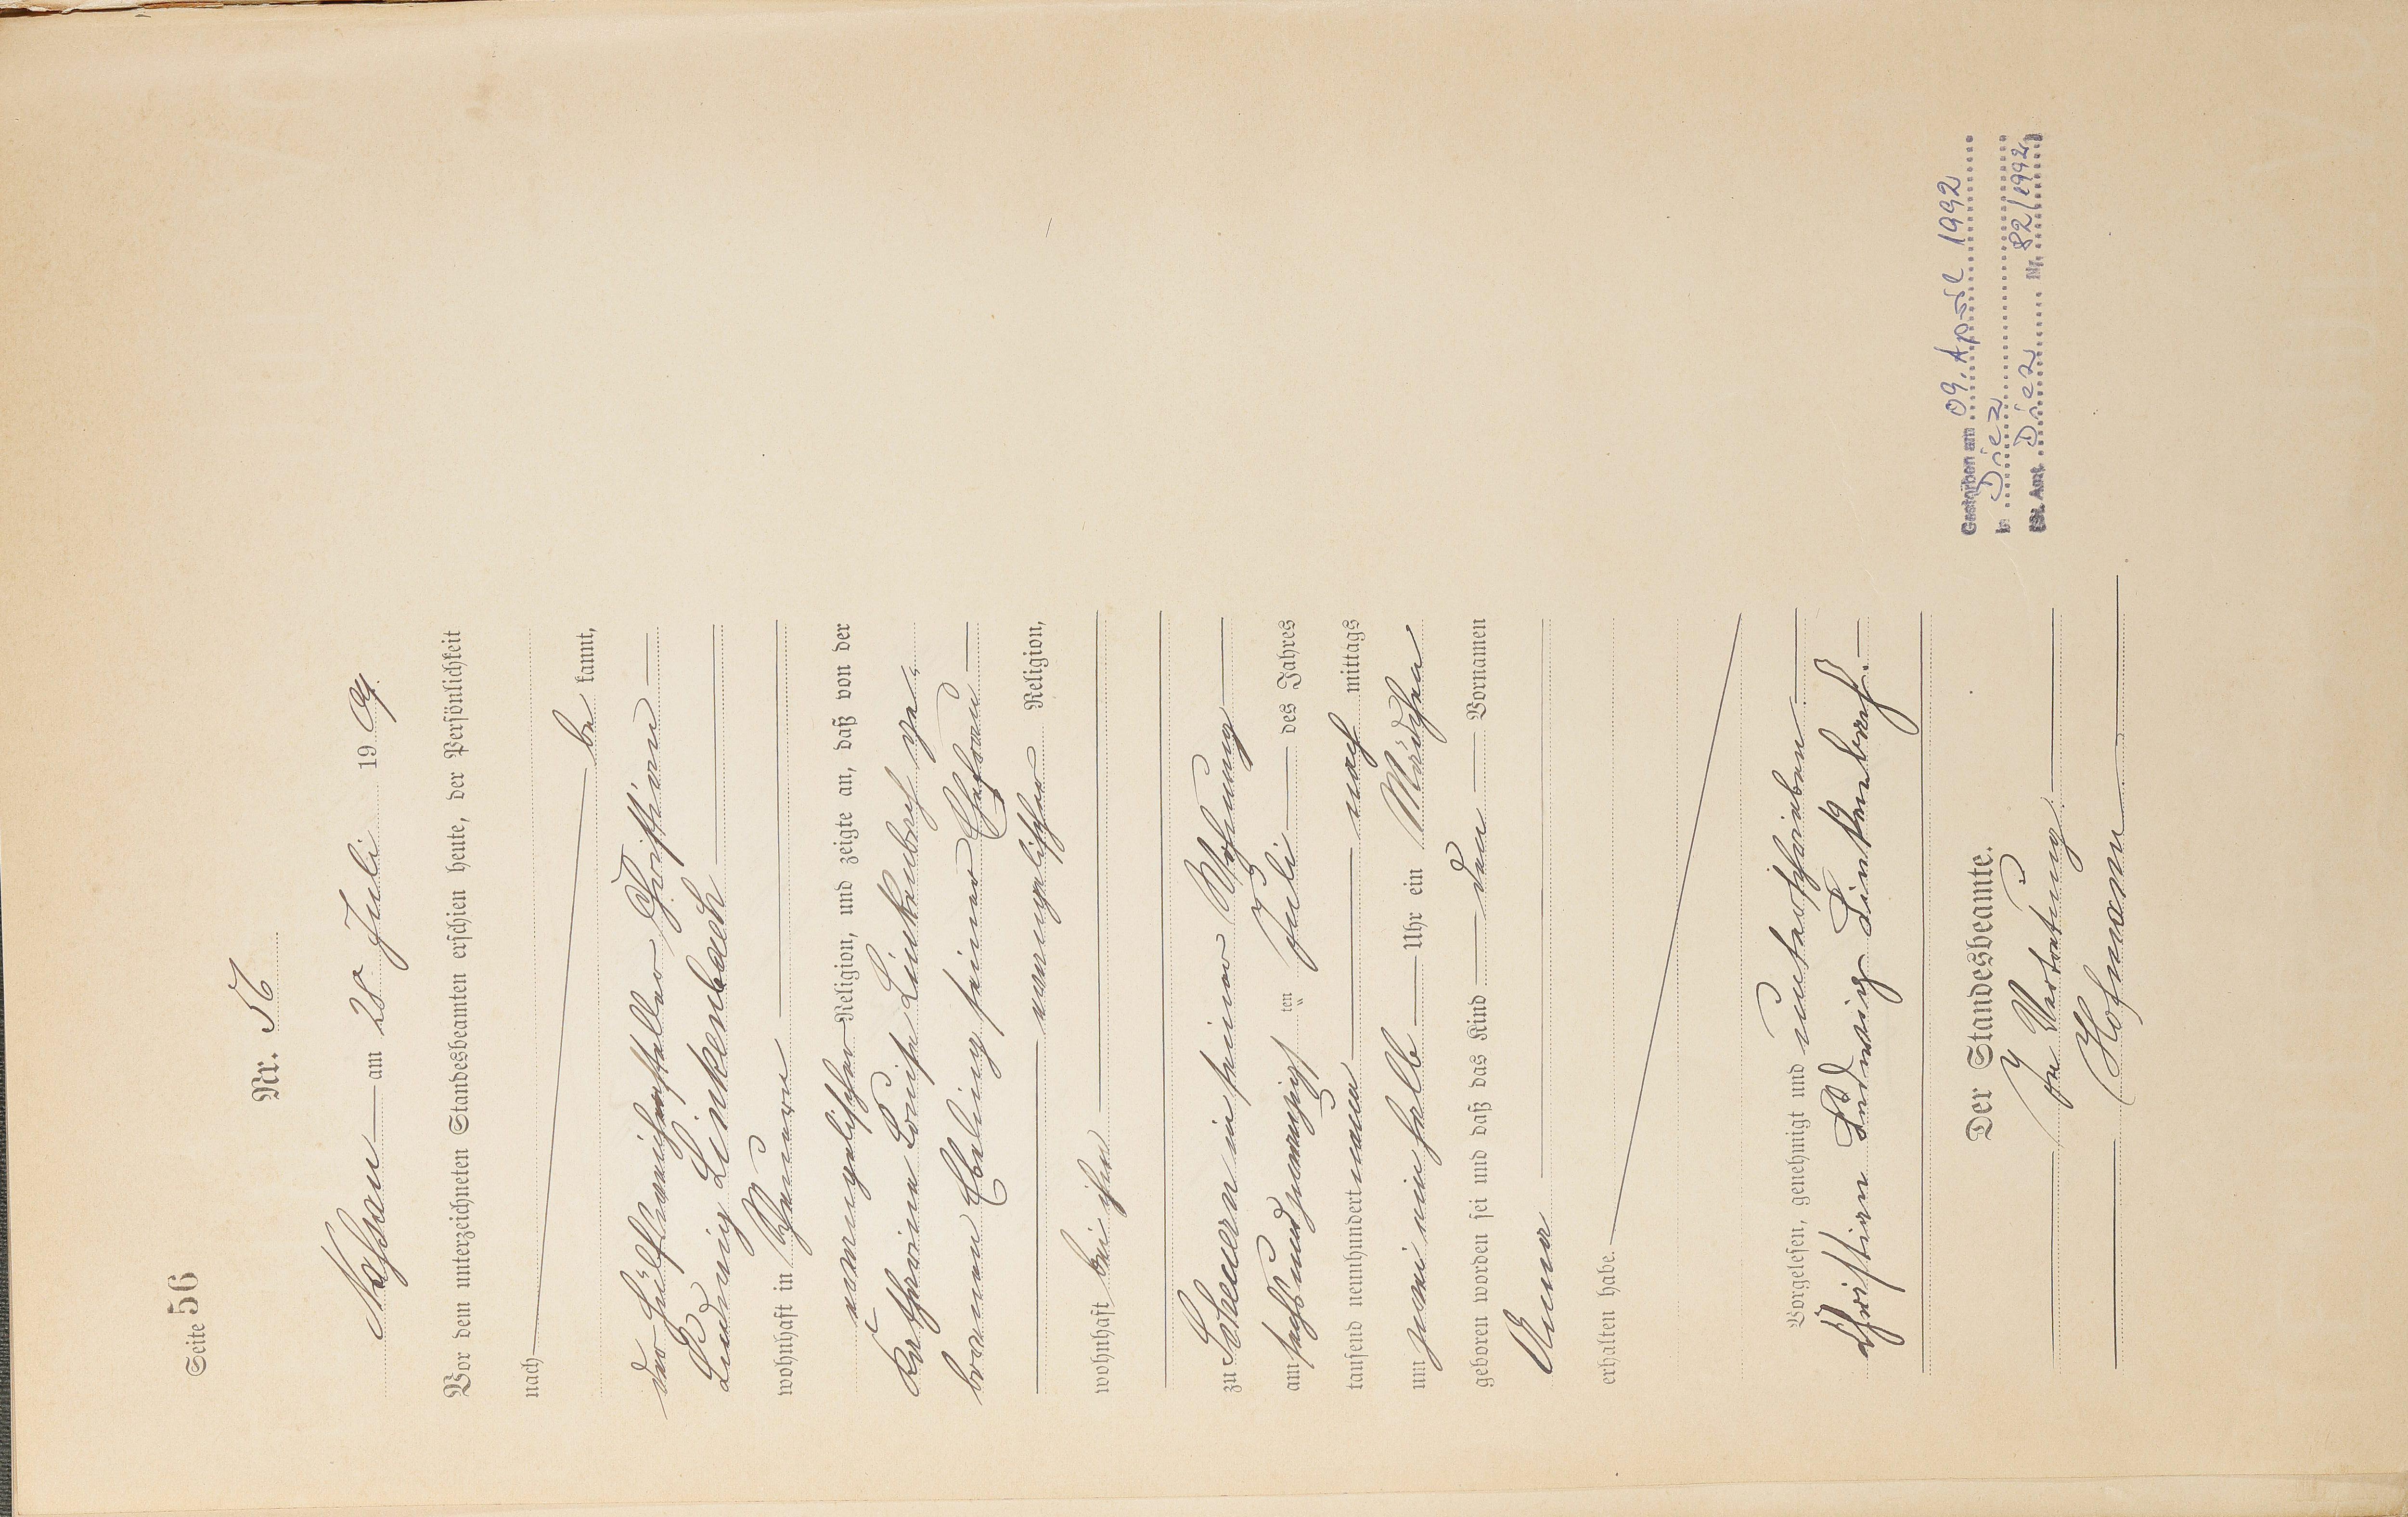 Seite 56
Nr. 56
Nassau am 28 Juli 1909.
Vor dem unterzeichneten Standesbeamten erschien heute, der Persönlichkeit
nach
be kannt,
der Hülfsweichensteller Christian
Ludwig Linkenbach
wohnhaft in Scheuern
evangelischer Religion, und zeigte an, daß von der
Katharina Louise Linkenbach ge-
borenen Ebeling seiner Ehefrau
evangelischer Religion,
wohnhaft bei ihm
zu Scheuern in seiner Wohnung
am sechsundzwanzigsten Juli des Jahres
tausend neunhundert neun nach mittags
um zwei ein halb Uhr ein Mädchen
geboren worden sei und daß das Kind den Vornamen
Anna
erhalten habe.
Vorgelesen, genehmigt und unterschrieben
Christian Ludwig Linkenbach.
Der Standesbeamte.
In Vertretung
Hofmann
Gestorben am 09. April 1992
in Diez
(St. Amt Diez Nr. 82/1992)